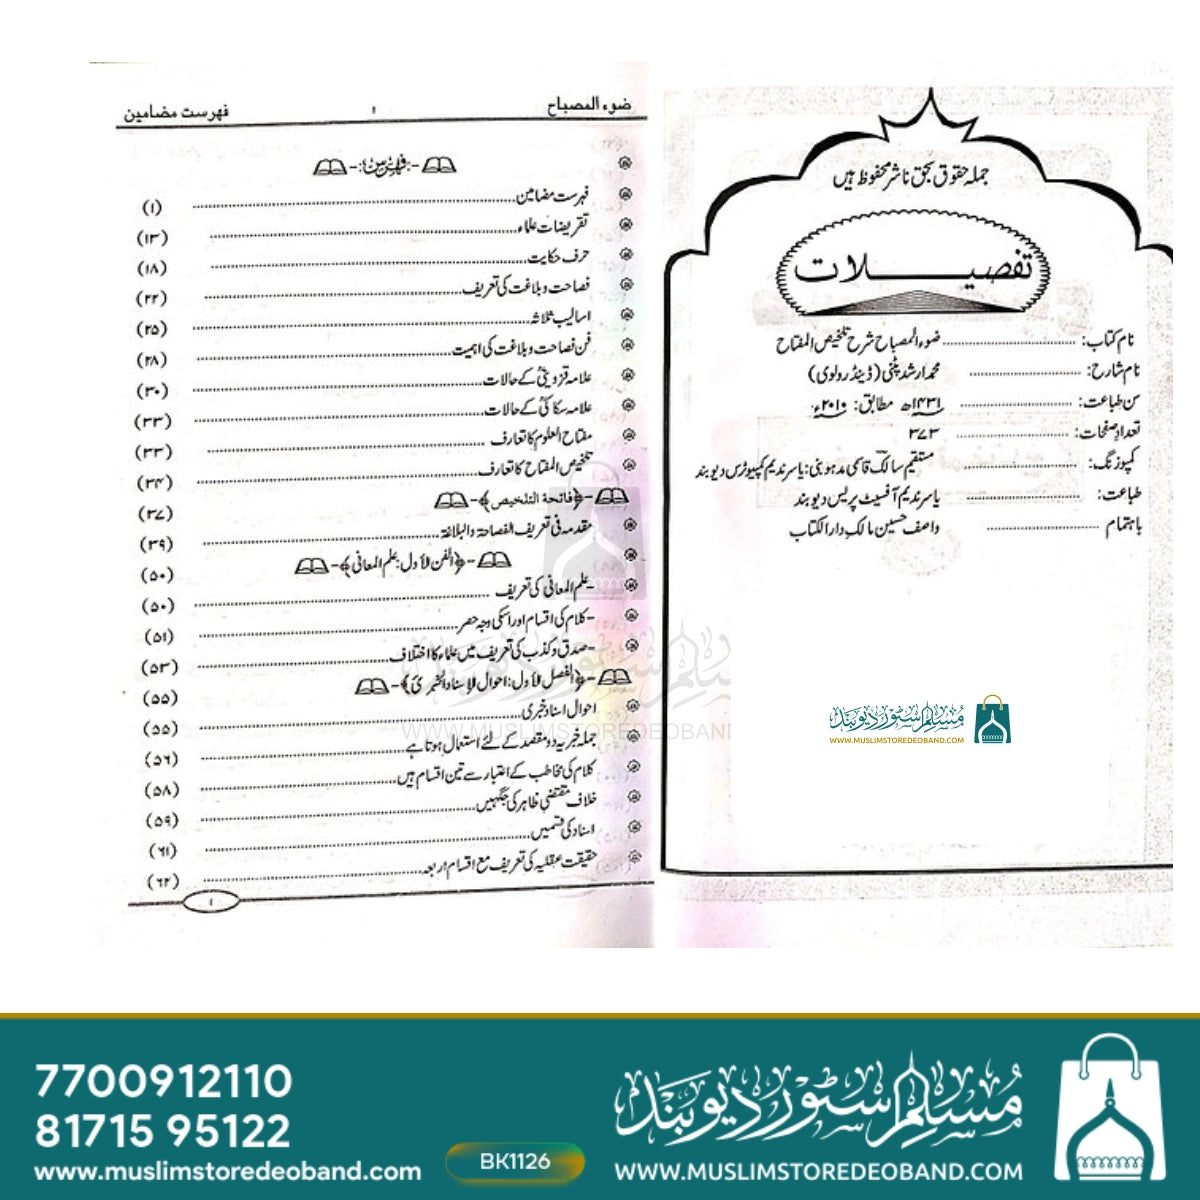 جملہ حقوق بحق ناشر محفوظ ہیں
تفصیلات
نام کتاب: ............ ضوء المصباح شرح تلخیص المفتاح
نام شارح: ............ محمد ارشد پٹنی (ڈینڈرولوی)
سن طباعت: ............ ۱۴۳۱ھ مطابق: ۲۰۱۰ء
تعداد صفحات: ............ ۳۷۳
کمپوزنگ: ............ مستقیم سالک قاسمی مدہوبنی: یاسر ندیم کمپیوٹرس دیوبند
طباعت: ............ یاسر ندیم آفسیٹ پریس دیوبند
باہتمام ............ واصف حسین مالک دارالکتاب
مسلم سٹور دیوبند
WWW.MUSLIMSTOREDEOBAND.COM
ضوء المصباح ۱ فہرست مضامین
فہرست مضامین ............ (۱)
تقریضات علماء ............ (۱۳)
حرف حکایت ............ (۱۸)
فصاحت و بلاغت کی تعریف ............ (۲۲)
اسالیب ثلاثہ ............ (۲۵)
فن فصاحت و بلاغت کی اہمیت ............ (۲۸)
علامہ قزوینیؒ کے حالات ............ (۳۰)
علامہ سکاکیؒ کے حالات ............ (۳۳)
مفتاح العلوم کا تعارف ............ (۳۳)
تلخیص المفتاح کا تعارف ............ (۳۴)
-﴿فاتحة التلخیص﴾- (۳۷)
مقدمہ فی تعریف الفصاحة والبلاغة ............ (۳۹)
-﴿الفن الأول: علم المعانی﴾- (۵۰)
-علم المعانی کی تعریف ............ (۵۰)
-کلام کی اقسام اور اسکی وجہ حصر ............ (۵۱)
-صدق و کذب کی تعریف میں علماء کا اختلاف ............ (۵۳)
-﴿الفصل الأول: احوال الإسناد الخبری﴾- (۵۵)
احوال اسناد خبری ............ (۵۵)
جملہ خبریہ دو مقصد کے لئے استعمال ہوتا ہے ............ (۵۶)
کلام کی مخاطب کے اعتبار سے تین اقسام ہیں ............ (۵۸)
خلاف مقتضی ظاہر کی جگہیں ............ (۵۹)
اسناد کی قسمیں ............ (۶۱)
حقیقت عقلیہ کی تعریف مع اقسام اربعہ ............ (۶۲)
۱
مسلم سٹور دیوبند
WWW.MUSLIMSTOREDEOBAND
7700912110
81715 95122
www.muslimstoredeoband.com
BK1126
مسلم سٹور دیوبند
WWW.MUSLIMSTOREDEOBAND.COM